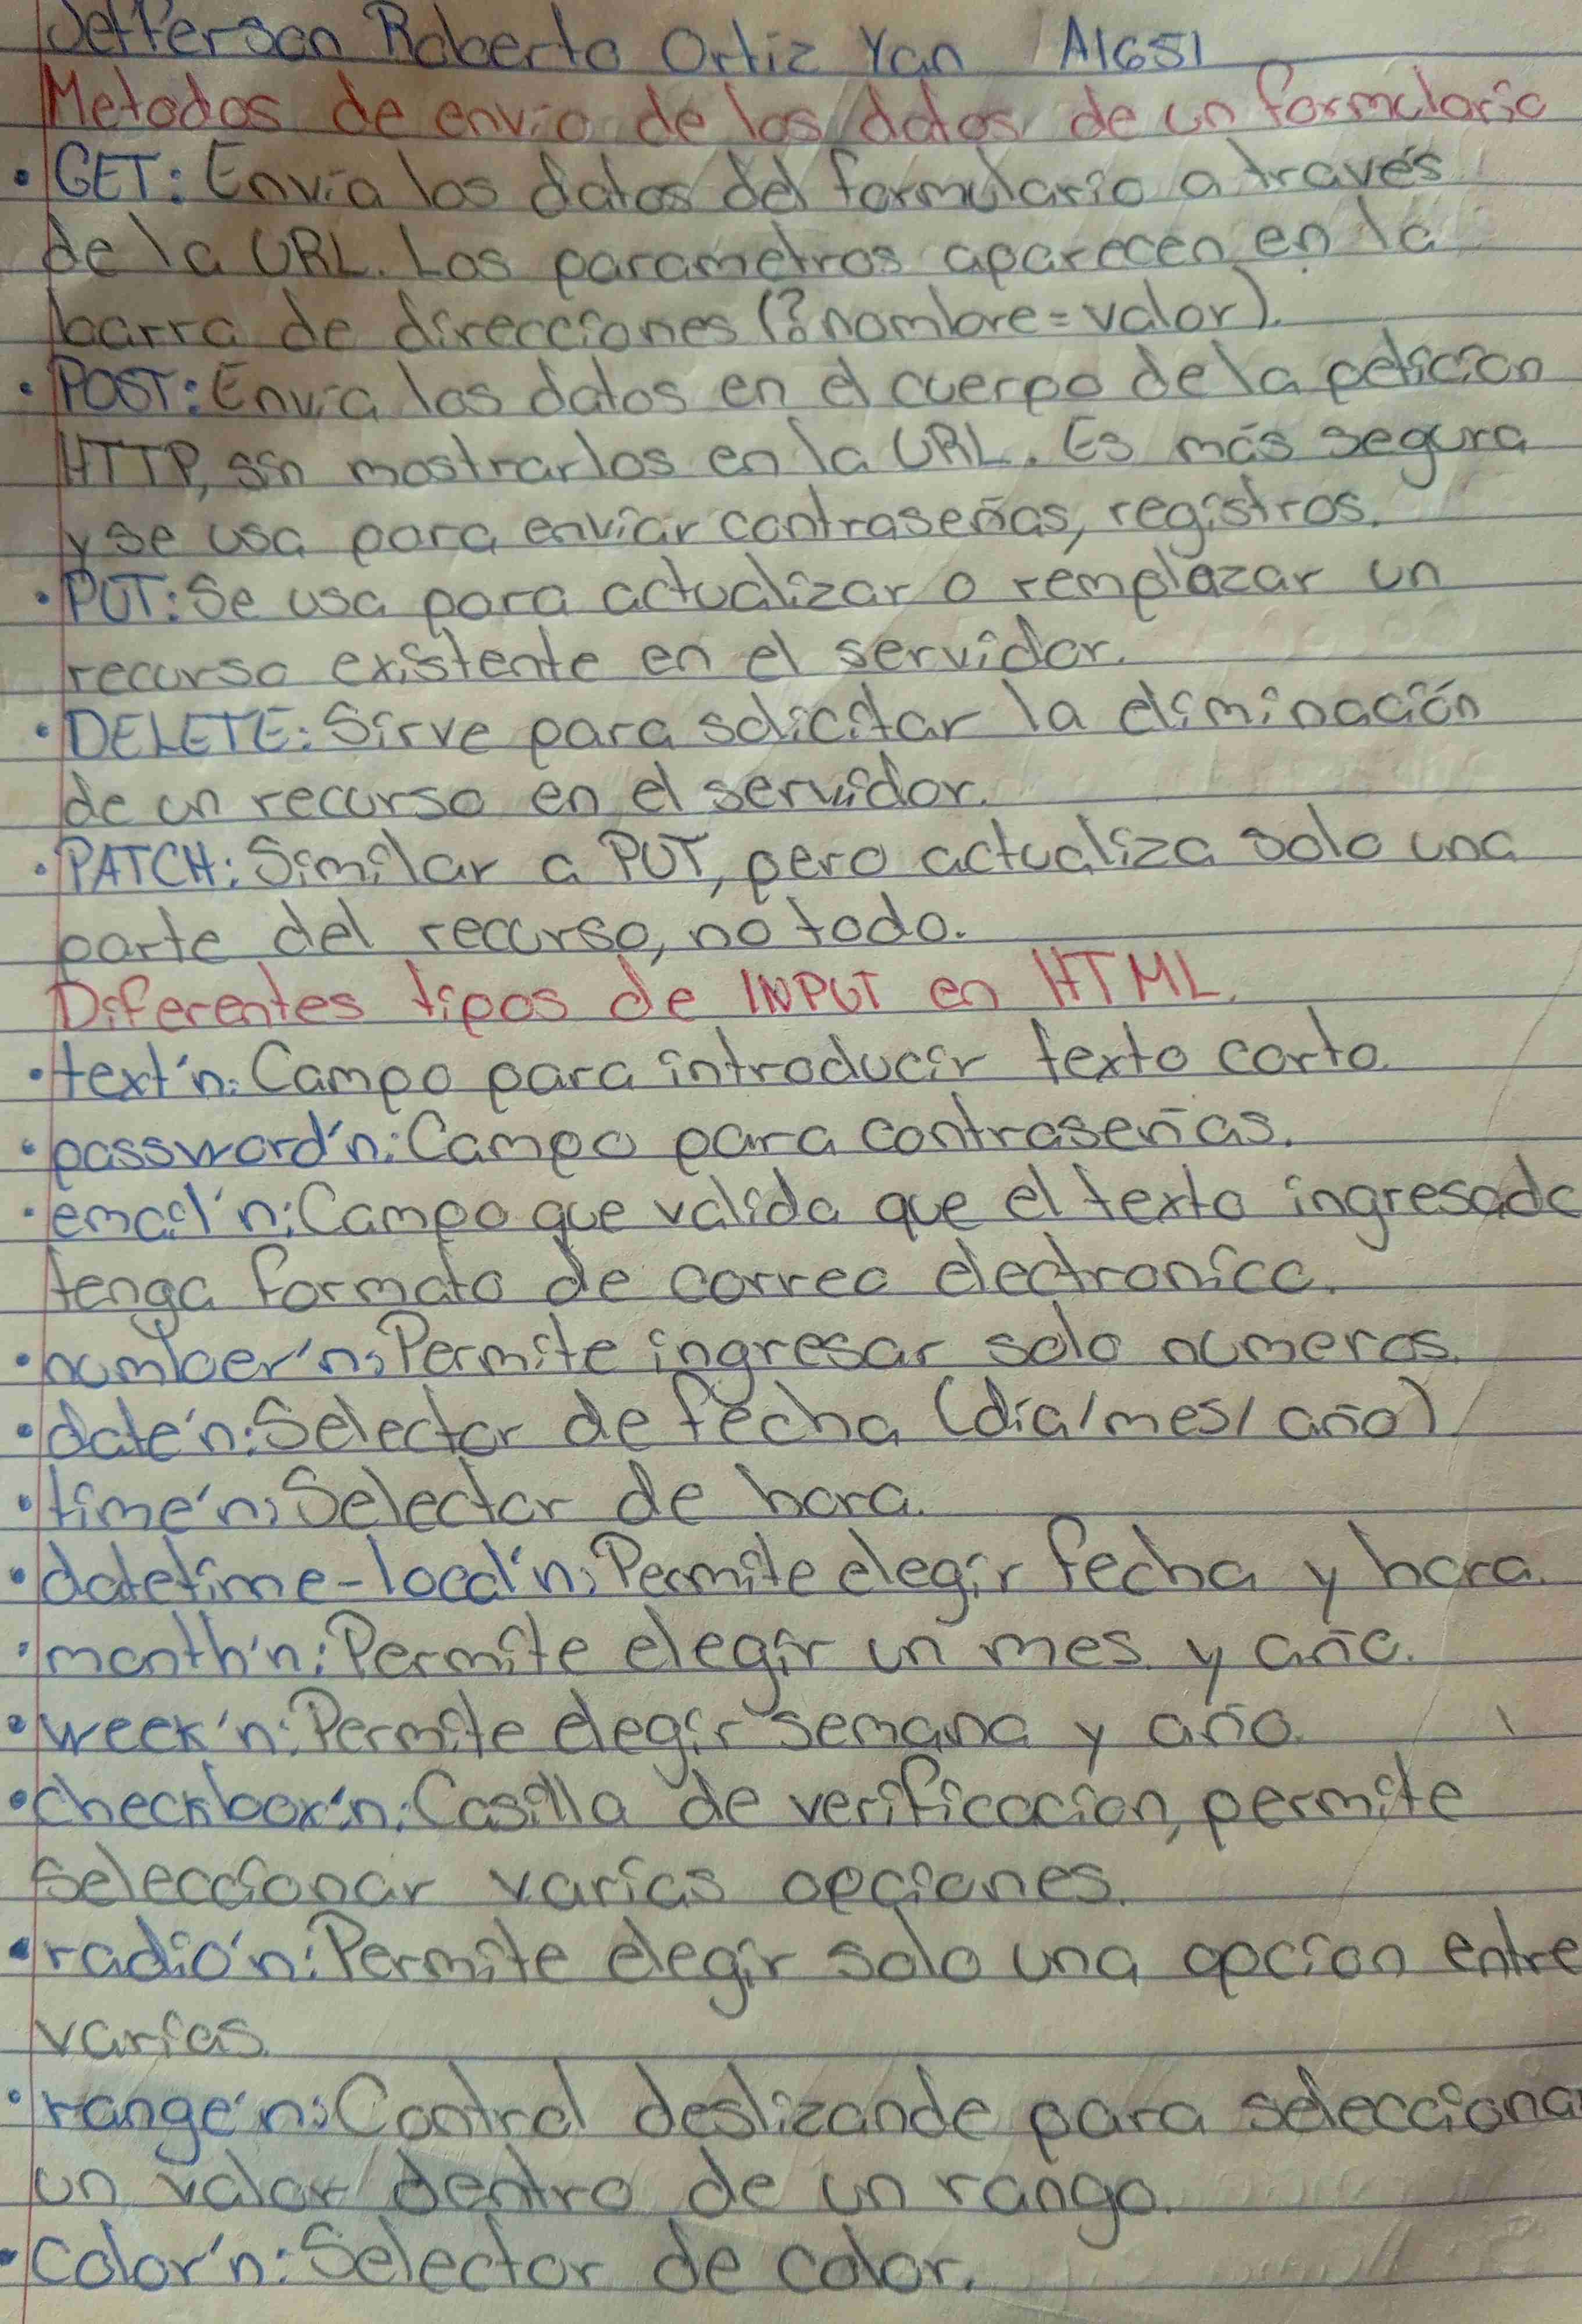 Jefferson Roberto Ortiz Yan A1651
Metodos de envio de los datos de un formulario
• GET: Envía los datos del formulario a través
de la URL. Los parametros aparecen en la
barra de direcciones (?nombre=valor).
• POST: Envía los datos en el cuerpo de la peticion
HTTP, sin mostrarlos en la URL. Es más segura
y se usa para enviar contraseñas, registros.
• PUT: Se usa para actualizar o remplazar un
recurso existente en el servidor.
• DELETE: Sirve para solicitar la eliminación
de un recurso en el servidor.
• PATCH: Similar a PUT, pero actualiza solo una
parte del recurso, no todo.
Diferentes tipos de INPUT en HTML.
• text'n: Campo para introducir texto corto.
• password'n: Campo para contraseñas.
• email'n: Campo que valida que el texto ingresado
tenga formato de correo electronico.
• number'n: Permite ingresar solo numeros.
• date'n: Selector de fecha (día/mes/año)
• time'n: Selector de hora.
• datetime-local'n: Permite elegir fecha y hora.
• month'n: Permite elegir un mes y año.
• week'n: Permite elegir semana y año.
• checkbox'n: Casilla de verificacion, permite
seleccionar varias opciones.
• radio'n: Permite elegir solo una opcion entre
varias.
• range'n: Control deslizande para selecciona
un valor dentro de un rango.
• color'n: Selector de color.